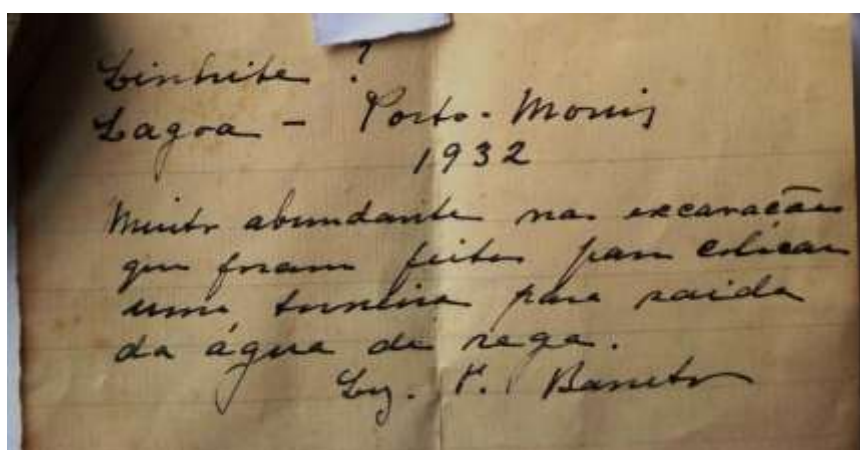 Linhite ?
Lagoa - Porto-Moniz
1932
Muito abundante nas excavações
que foram feitas para colocar
uma torneira para saida
da água de rega.
P. Barreto